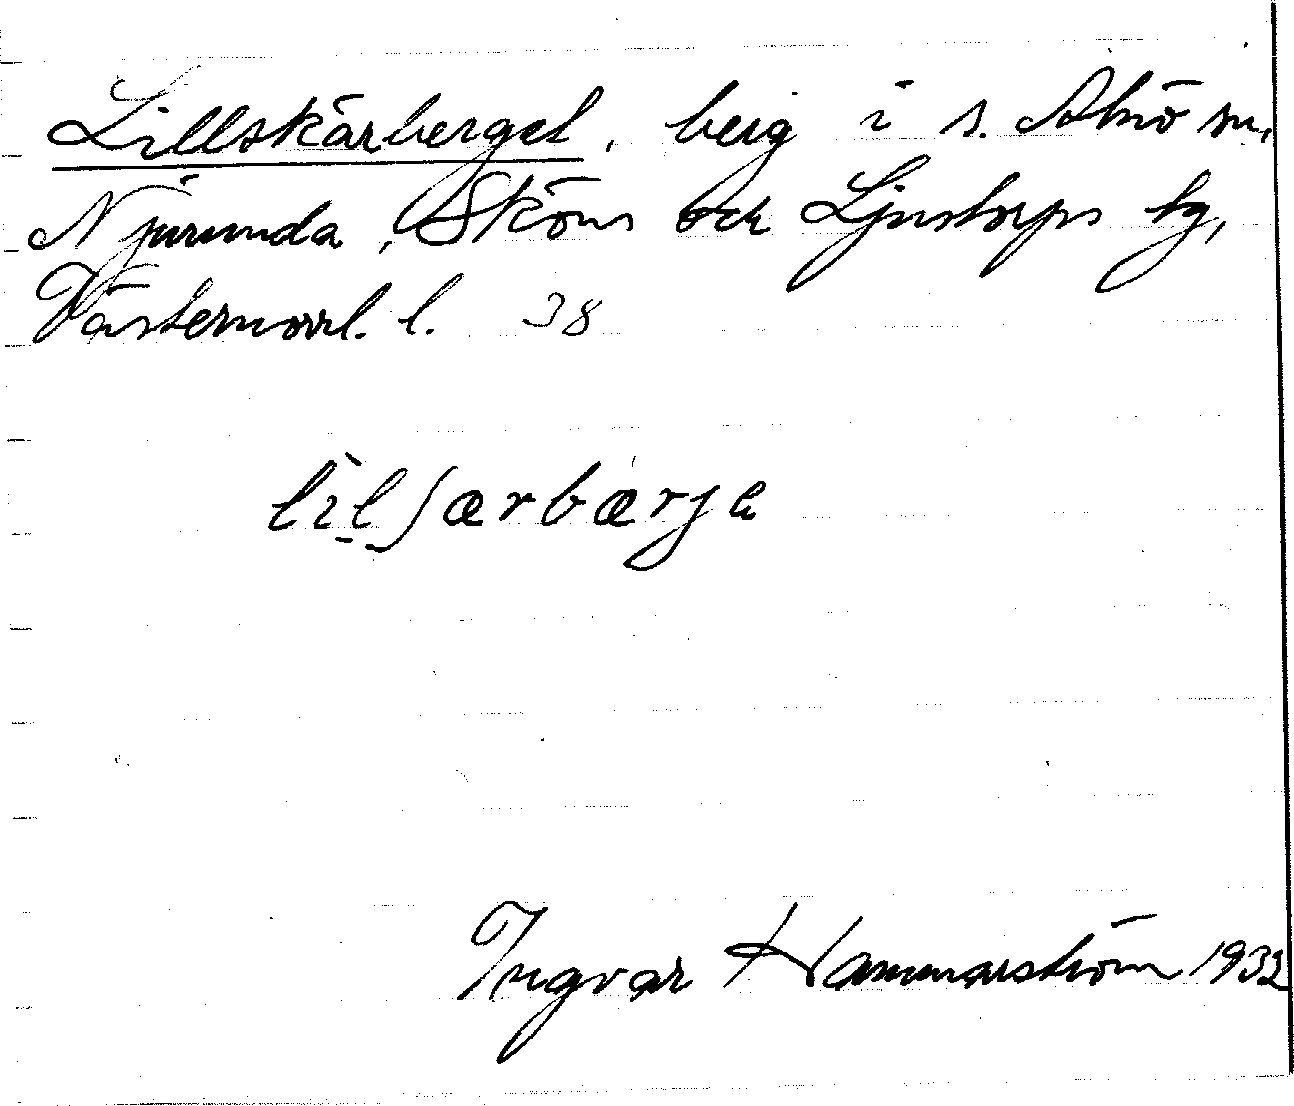 Lillskärberget, berg i s. Alnö sn,
Njurunda, Sköns och Ljustorps tg,
Västernorrl. l. 38
lìlʃærbærje
Ingvar Hammarström 1932